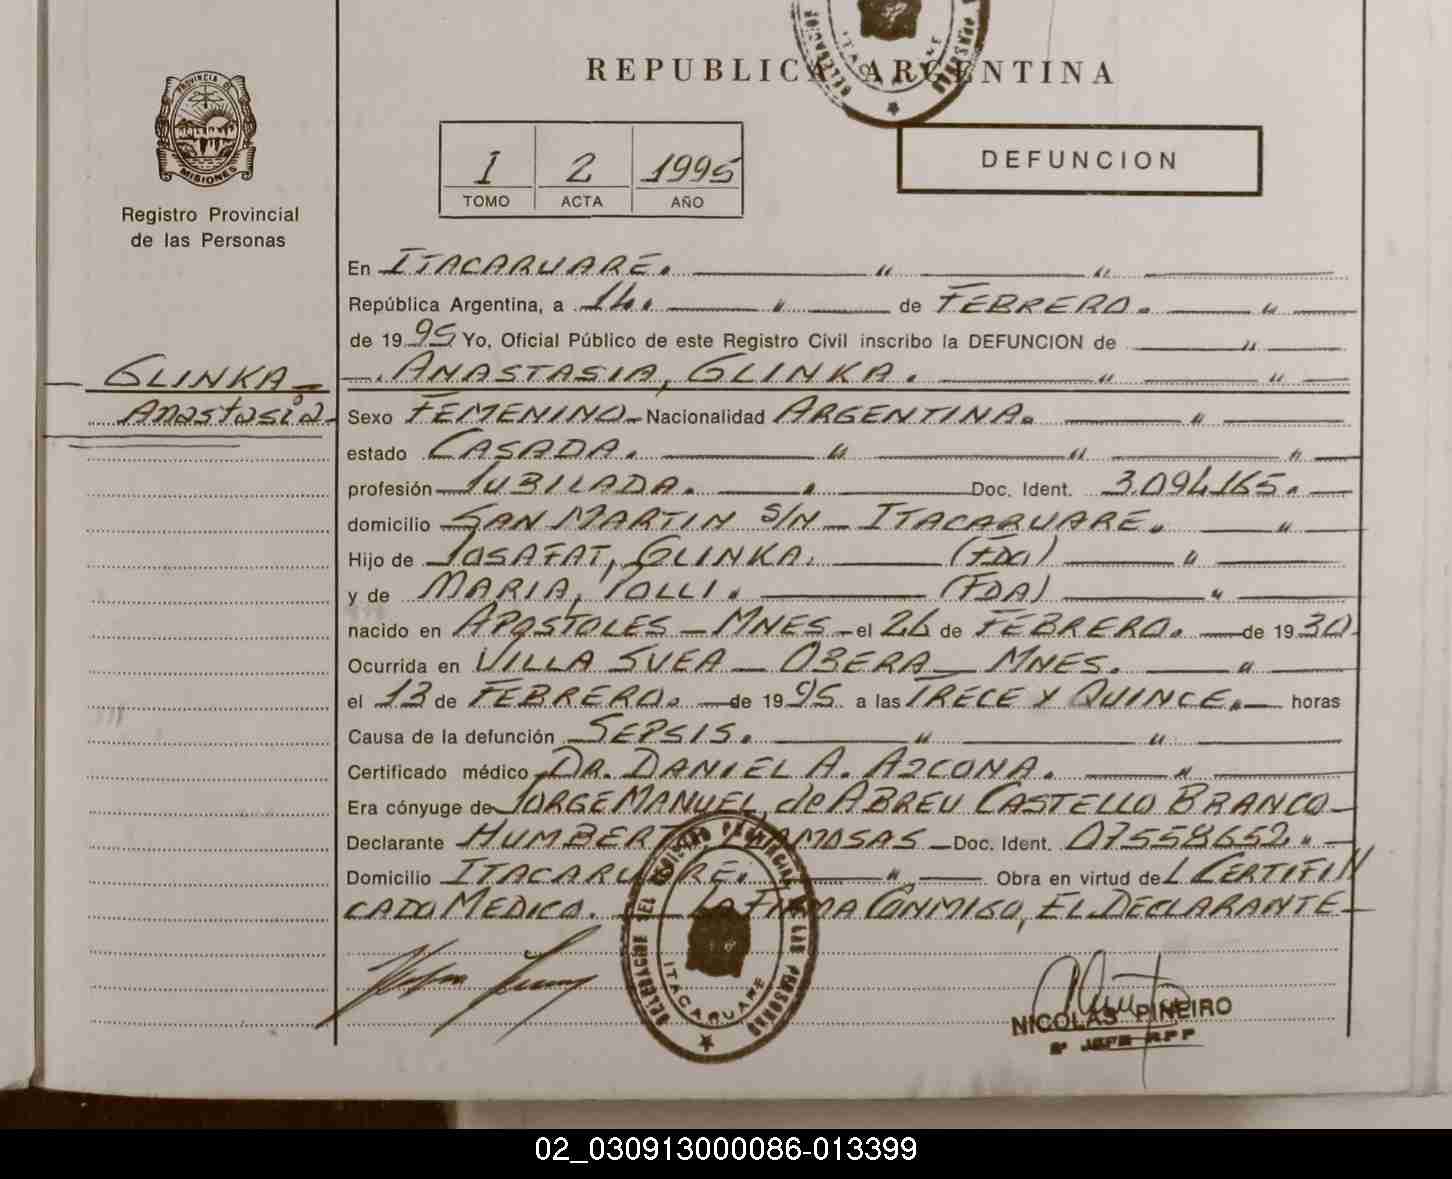 REPUBLICA ARGENTINA
PROVINCIA DE
MISIONES
Registro Provincial
de las Personas
I 2 1995
TOMO ACTA AÑO
DEFUNCION
En ITACARUARE. — " — " —
República Argentina, a 14. — " — de FEBRERO. — " —
de 1995 Yo, Oficial Público de este Registro Civil inscribo la DEFUNCION de — " —
GLINKA —. ANASTASIA, GLINKA. — " — " —
Anastasia Sexo FEMENINO — Nacionalidad ARGENTINA. — " —
estado CASADA. — " — " — " —
profesión — JUBILADA. — " — Doc. Ident. 3.094.165. —
domicilio — SAN MARTIN S/N — ITACARUARE. — " —
Hijo de — JOSAFAT, GLINKA. — (FDO) — " —
y de MARIA, IOLLI. — (FDA) — " —
nacido en APOSTOLES — MNES — el 26 de FEBRERO. — de 1930
Ocurrida en VILLA SVEA — OBERA — MNES. — " —
el 13 de FEBRERO. — de 1995. a las TRECE Y QUINCE. — horas
Causa de la defunción SEPSIS. — " — " —
Certificado médico DR. DANIEL A. AZCONA. — " —
Era cónyuge de JORGE MANUEL, de ABREU CASTELLO BRANCO —
Declarante HUMBERTO — Doc. Ident. 07558652. " —
Domicilio ITACARUARE. — " — Obra en virtud de L CERTIFI
CADO MEDICO. — LA FIRMA CONMIGO, EL DECLARANTE —
DELEGACION DEL REGISTRO PROVINCIAL DE LAS PERSONAS
ITACARUARE
NICOLAS PIÑEIRO
JEFE RPP
02_030913000086-013399